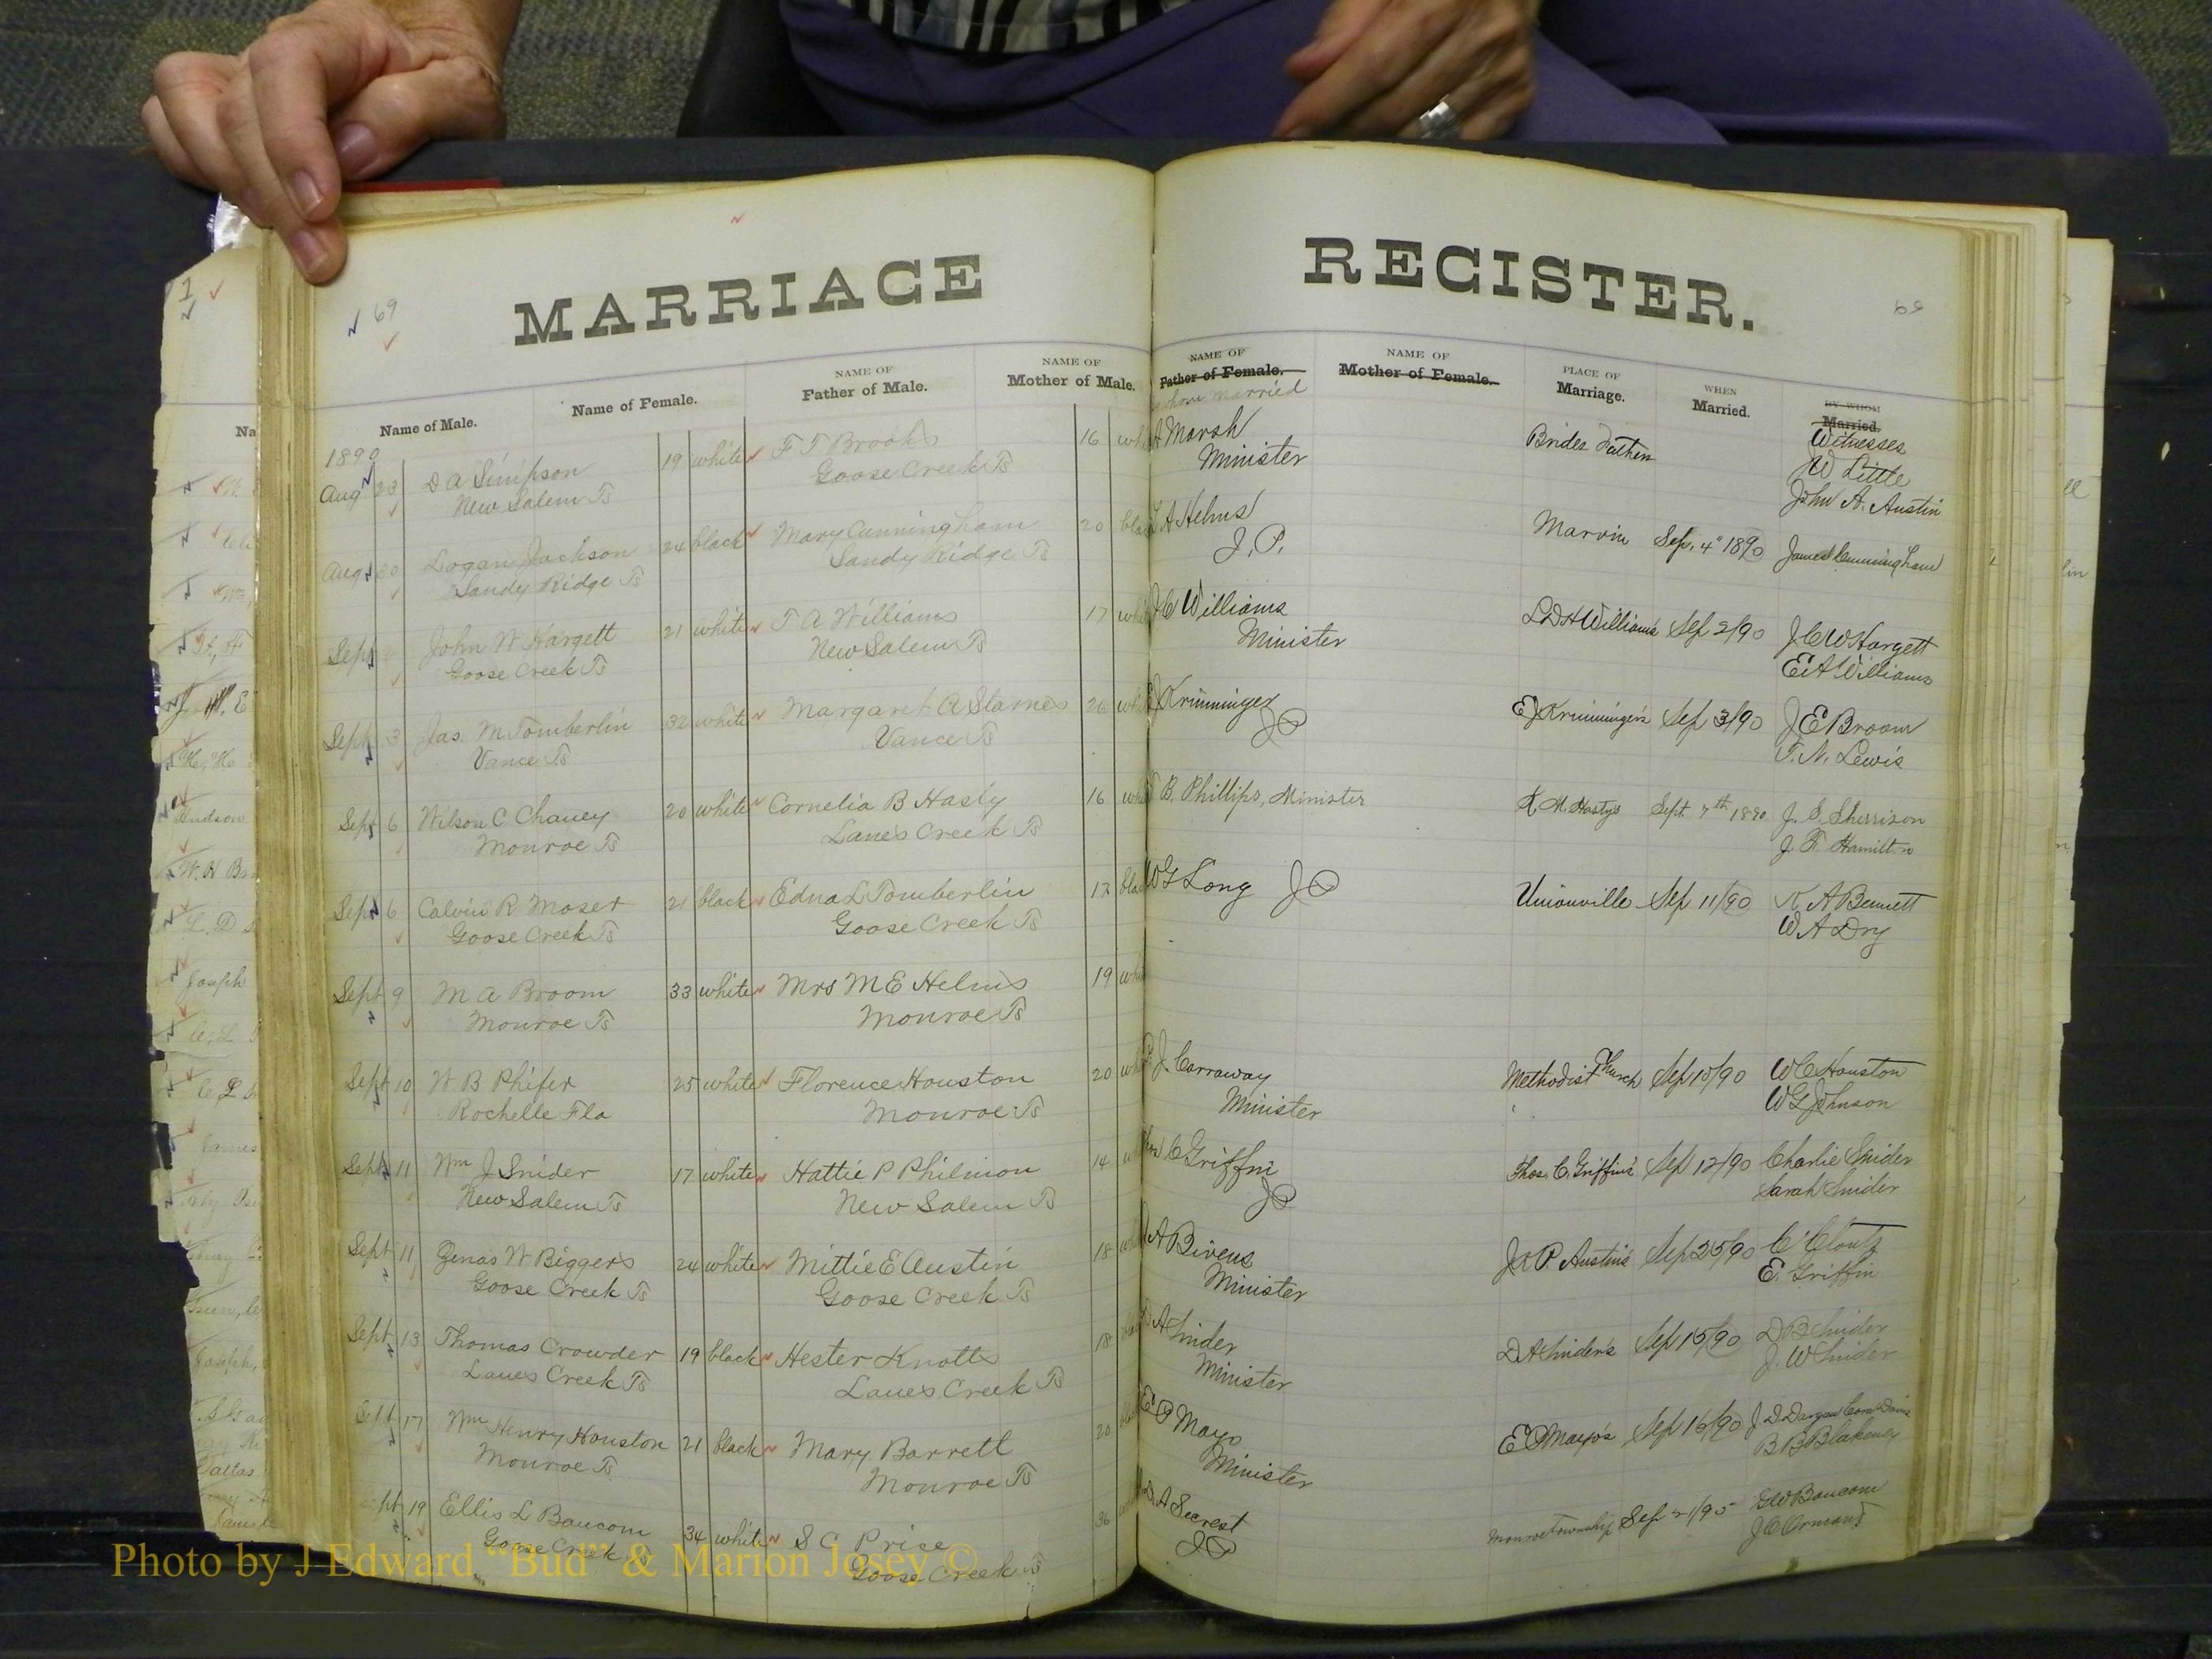 MARRIAGE REGISTER.
69
Name of Male.
Name of Female.
NAME OF
Father of Male.
NAME OF
Mother of Male.
NAME OF
Father of Female.
whom married
NAME OF
Mother of Female.
PLACE OF
Marriage.
WHEN
Married.
BY WHOM
Married.
Witnesses
1890
Aug 23 D A Simpson 19 white F T Brooks 16 A Marsh Brides Fathers W Little
New Salem Ts Goose Creek Ts Minister John A. Austin
Aug 30 Logan Jackson 24 black Mary Cunningham 20 A Helms Marvin Sep. 4" 1890 James Cunningham
Sandy Ridge Ts Sandy Ridge Ts J. P.
Sept John W Hargett 21 white T A Williams 17 J C Williams L D H Williams Sep 2/90 J C W Hargett
Goose Creek Ts New Salem Ts Minister E A Williams
Sept 3 Jas. M Tomberlin 32 white Margaret A Starnes 26 Krimminger E J Krimminger's Sep 3/90 J E Broom
Vance Ts Vance Ts JP T. N. Lewis
Sept 6 Wilson C Chaney 20 white Cornelia B Hasty 16 B. Phillips, Minister K. M. Hastys Sept. 7th 1890 J. S. Sherrison
Monroe Ts Lanes Creek Ts J. F. Hamilton
Sept 6 Calvin R Moser 21 black Edna L Tomberlin 17 W G Long JP Unionville Sep 11/90 K A Bennett
Goose Creek Ts Goose Creek Ts W A Dry
Sept 9 M A Broom 33 white Mrs M E Helms 19
Monroe Ts Monroe Ts
Sept 10 W B Phifer 25 white Florence Houston 20 J. Carraway Methodist Church Sep 10/90 W C Houston
Rochelle Fla Monroe Ts Minister W G Johnson
Sept 11 Wm J Snider 17 white Hattie P Philmon 14 C Griffin Thos. C. Griffin's Sep 12/90 Charlie Snider
New Salem Ts New Salem Ts JP Sarah Snider
Sept 11 Zenas W Biggers 24 white Mittie E Austin 18 A Bivens J R P Austin's Sep 25/90 C Clontz
Goose Creek Ts Goose Creek Ts Minister E. Griffin
Sept 13 Thomas Crowder 19 black Hester Knotts 18 D A Snider D A Snider's Sep 15/90 D B Snider
Lanes Creek Ts Lanes Creek Ts Minister J. W Snider
Sept 17 Wm Henry Houston 21 black Mary Barrett 20 E P Mayo E P Mayo's Sep 16/90 J. D. Dargan Cora Davis
Monroe Ts Monroe Ts Minister B B Blakeney
Sept 19 Ellis L Baucom 34 white S C Price 36 A Secrest Monroe Township Sep 21/90 G W Baucom
Goose Creek Ts Goose Creek Ts JP J C Ormand
Photo by J Edward "Bud" & Marion Josey ©